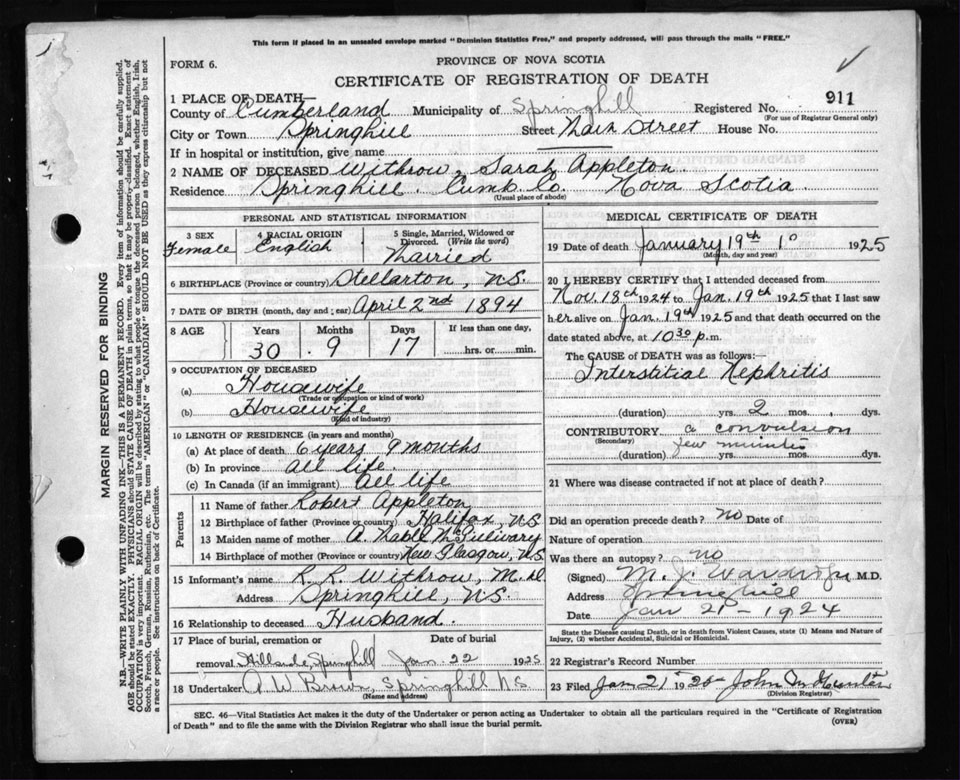 This form if placed in an unsealed envelope marked "Dominion Statistics Free," and properly addressed, will pass through the mails "FREE."
FORM 6.
PROVINCE OF NOVA SCOTIA
CERTIFICATE OF REGISTRATION OF DEATH
1 PLACE OF DEATH—
County of Cumberland Municipality of Springhill Registered No. 911
(For use of Registrar General only)
City or Town Springhill Street Main Street House No.
If in hospital or institution, give name
2 NAME OF DECEASED Withrow, Sarah Appleton.
Residence Springhill. Cumb. Co. Nova Scotia.
(Usual place of abode)
PERSONAL AND STATISTICAL INFORMATION
3 SEX Female
4 RACIAL ORIGIN English
5 Single, Married, Widowed or Divorced. (Write the word) Married
6 BIRTHPLACE (Province or country) Stellarton, N.S.
7 DATE OF BIRTH (month, day and year) April 2nd 1894
8 AGE Years Months Days If less than one day,
30 9 17 hrs. or min.
9 OCCUPATION OF DECEASED
(a) Housewife
(Trade or occupation or kind of work)
(b) Housewife
(Kind of industry)
10 LENGTH OF RESIDENCE (in years and months)
(a) At place of death 6 years 9 months
(b) In province all life.
(c) In Canada (if an immigrant) all life
Parents
11 Name of father Robert Appleton
12 Birthplace of father (Province or country) Halifax, N.S
13 Maiden name of mother A. Mable McGillivary
14 Birthplace of mother (Province or country) New Glasgow, N.S.
15 Informant's name R. R. Withrow, M.D.
Address Springhill, N.S
16 Relationship to deceased Husband.
17 Place of burial, cremation or removal Hillside, Springhill
Date of burial Jan. 22 1925
18 Undertaker A W Brown, Springhill N.S.
(Name and address)
MEDICAL CERTIFICATE OF DEATH
19 Date of death January 19th 1925
(Month, day and year)
20 I HEREBY CERTIFY that I attended deceased from
Nov. 18th 1924 to Jan. 19th 1925 that I last saw
her alive on Jan. 19th 1925 and that death occurred on the
date stated above, at 10 30 p.m.
The CAUSE OF DEATH was as follows:—
Interstitial Nephritis
(duration) yrs. 2 mos., dys.
CONTRIBUTORY a convulsion
(Secondary) few minutes
(duration) yrs. mos. dys.
21 Where was disease contracted if not at place of death?
Did an operation precede death? no Date of
Nature of operation
Was there an autopsy? no
(Signed) M. J. M.D.
Address Springhill
Date Jan 21 - 1924
State the Disease causing Death, or in death from Violent Causes, state (1) Means and Nature of
Injury, (2) whether Accidental, Suicidal or Homicidal.
22 Registrar's Record Number
23 Filed Jan 21 1925 John M Hunter
(Division Registrar)
SEC. 46—Vital Statistics Act makes it the duty of the Undertaker or person acting as Undertaker to obtain all the particulars required in the "Certificate of Registration
of Death" and to file the same with the Division Registrar who shall issue the burial permit. (OVER)
MARGIN RESERVED FOR BINDING
N.B.—WRITE PLAINLY WITH UNFADING INK—THIS IS A PERMANENT RECORD. Every item of information should be carefully supplied.
AGE should be stated EXACTLY. PHYSICIANS should STATE CAUSE OF DEATH in plain terms, so that it may be properly classified. Exact statement of
OCCUPATION is very important. RACIAL ORIGIN will be described by stating to what people or tongue the deceased person belonged, whether English, Irish,
Scotch, French, German, Russian, Ruthenian, etc. The terms "AMERICAN" or "CANADIAN" SHOULD NOT BE USED as they express citizenship but not
a race or people. See instructions on back of Certificate.